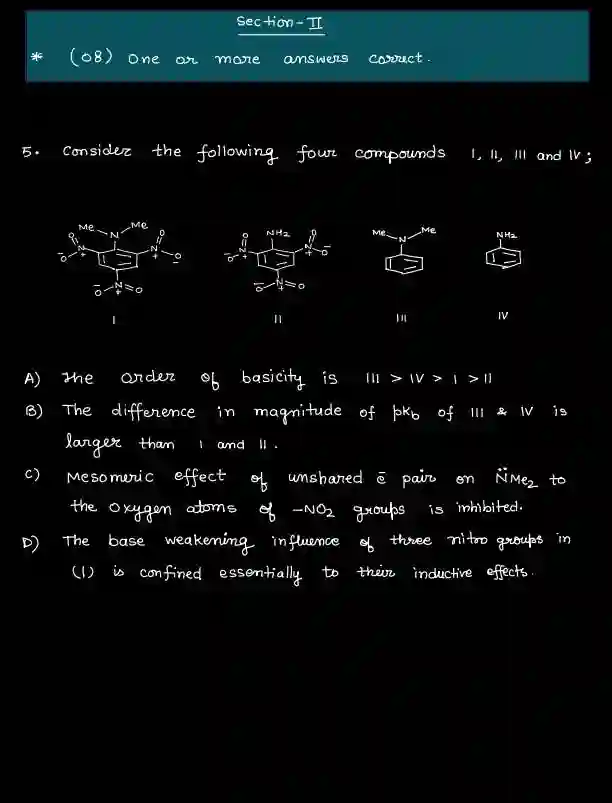 Section-II
* (08) One or more answers correct.
5. Consider the following four compounds I, II, III and IV;
Me N Me
O N + O - N + O O - N + O -
I
NH2
O N + O - N + O O - N + O -
II
Me N Me
III
NH2
IV
A) The order of basicity is III > IV > I > II
B) The difference in magnitude of pkb of III & IV is
larger than I and II.
C) Mesomeric effect of unshared ē pair on N̈Me2 to
the oxygen atoms of -NO2 groups is inhibited.
D) The base weakening influence of three nitro groups in
(I) is confined essentially to their inductive effects.